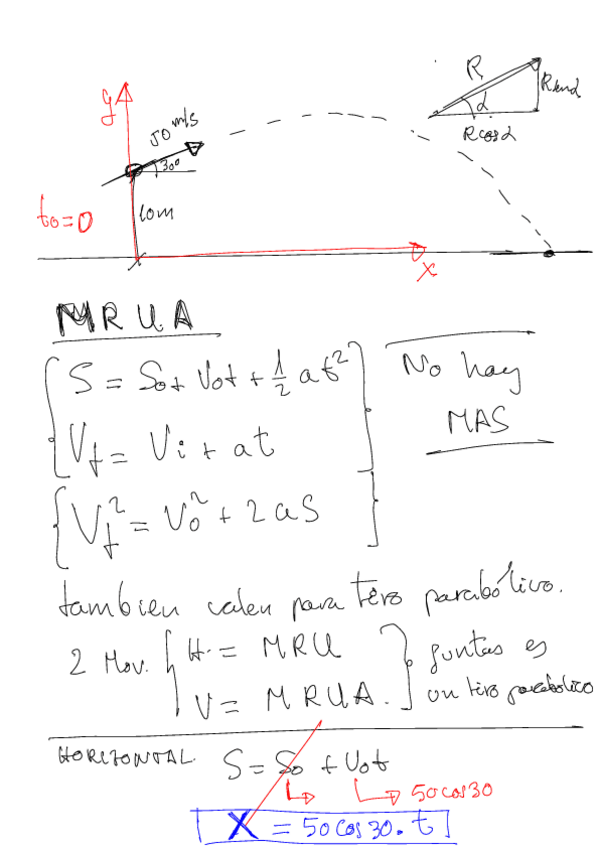 y
50 m/s
30º
10m
t₀=0
x
R
α
R sen α
R cos α
MRUA
S = S₀ + V₀t + 1/2 at²
No hay
MAS
V_f = Vi + at
V_f² = V₀² + 2aS
tambien valen para tiro parabólico.
2 Mov. { H. = MRU
V = MRUA. } juntas es
un tiro parabólico
HORIZONTAL S = S₀ + V₀t
50 cos 30
X = 50 cos 30 . t